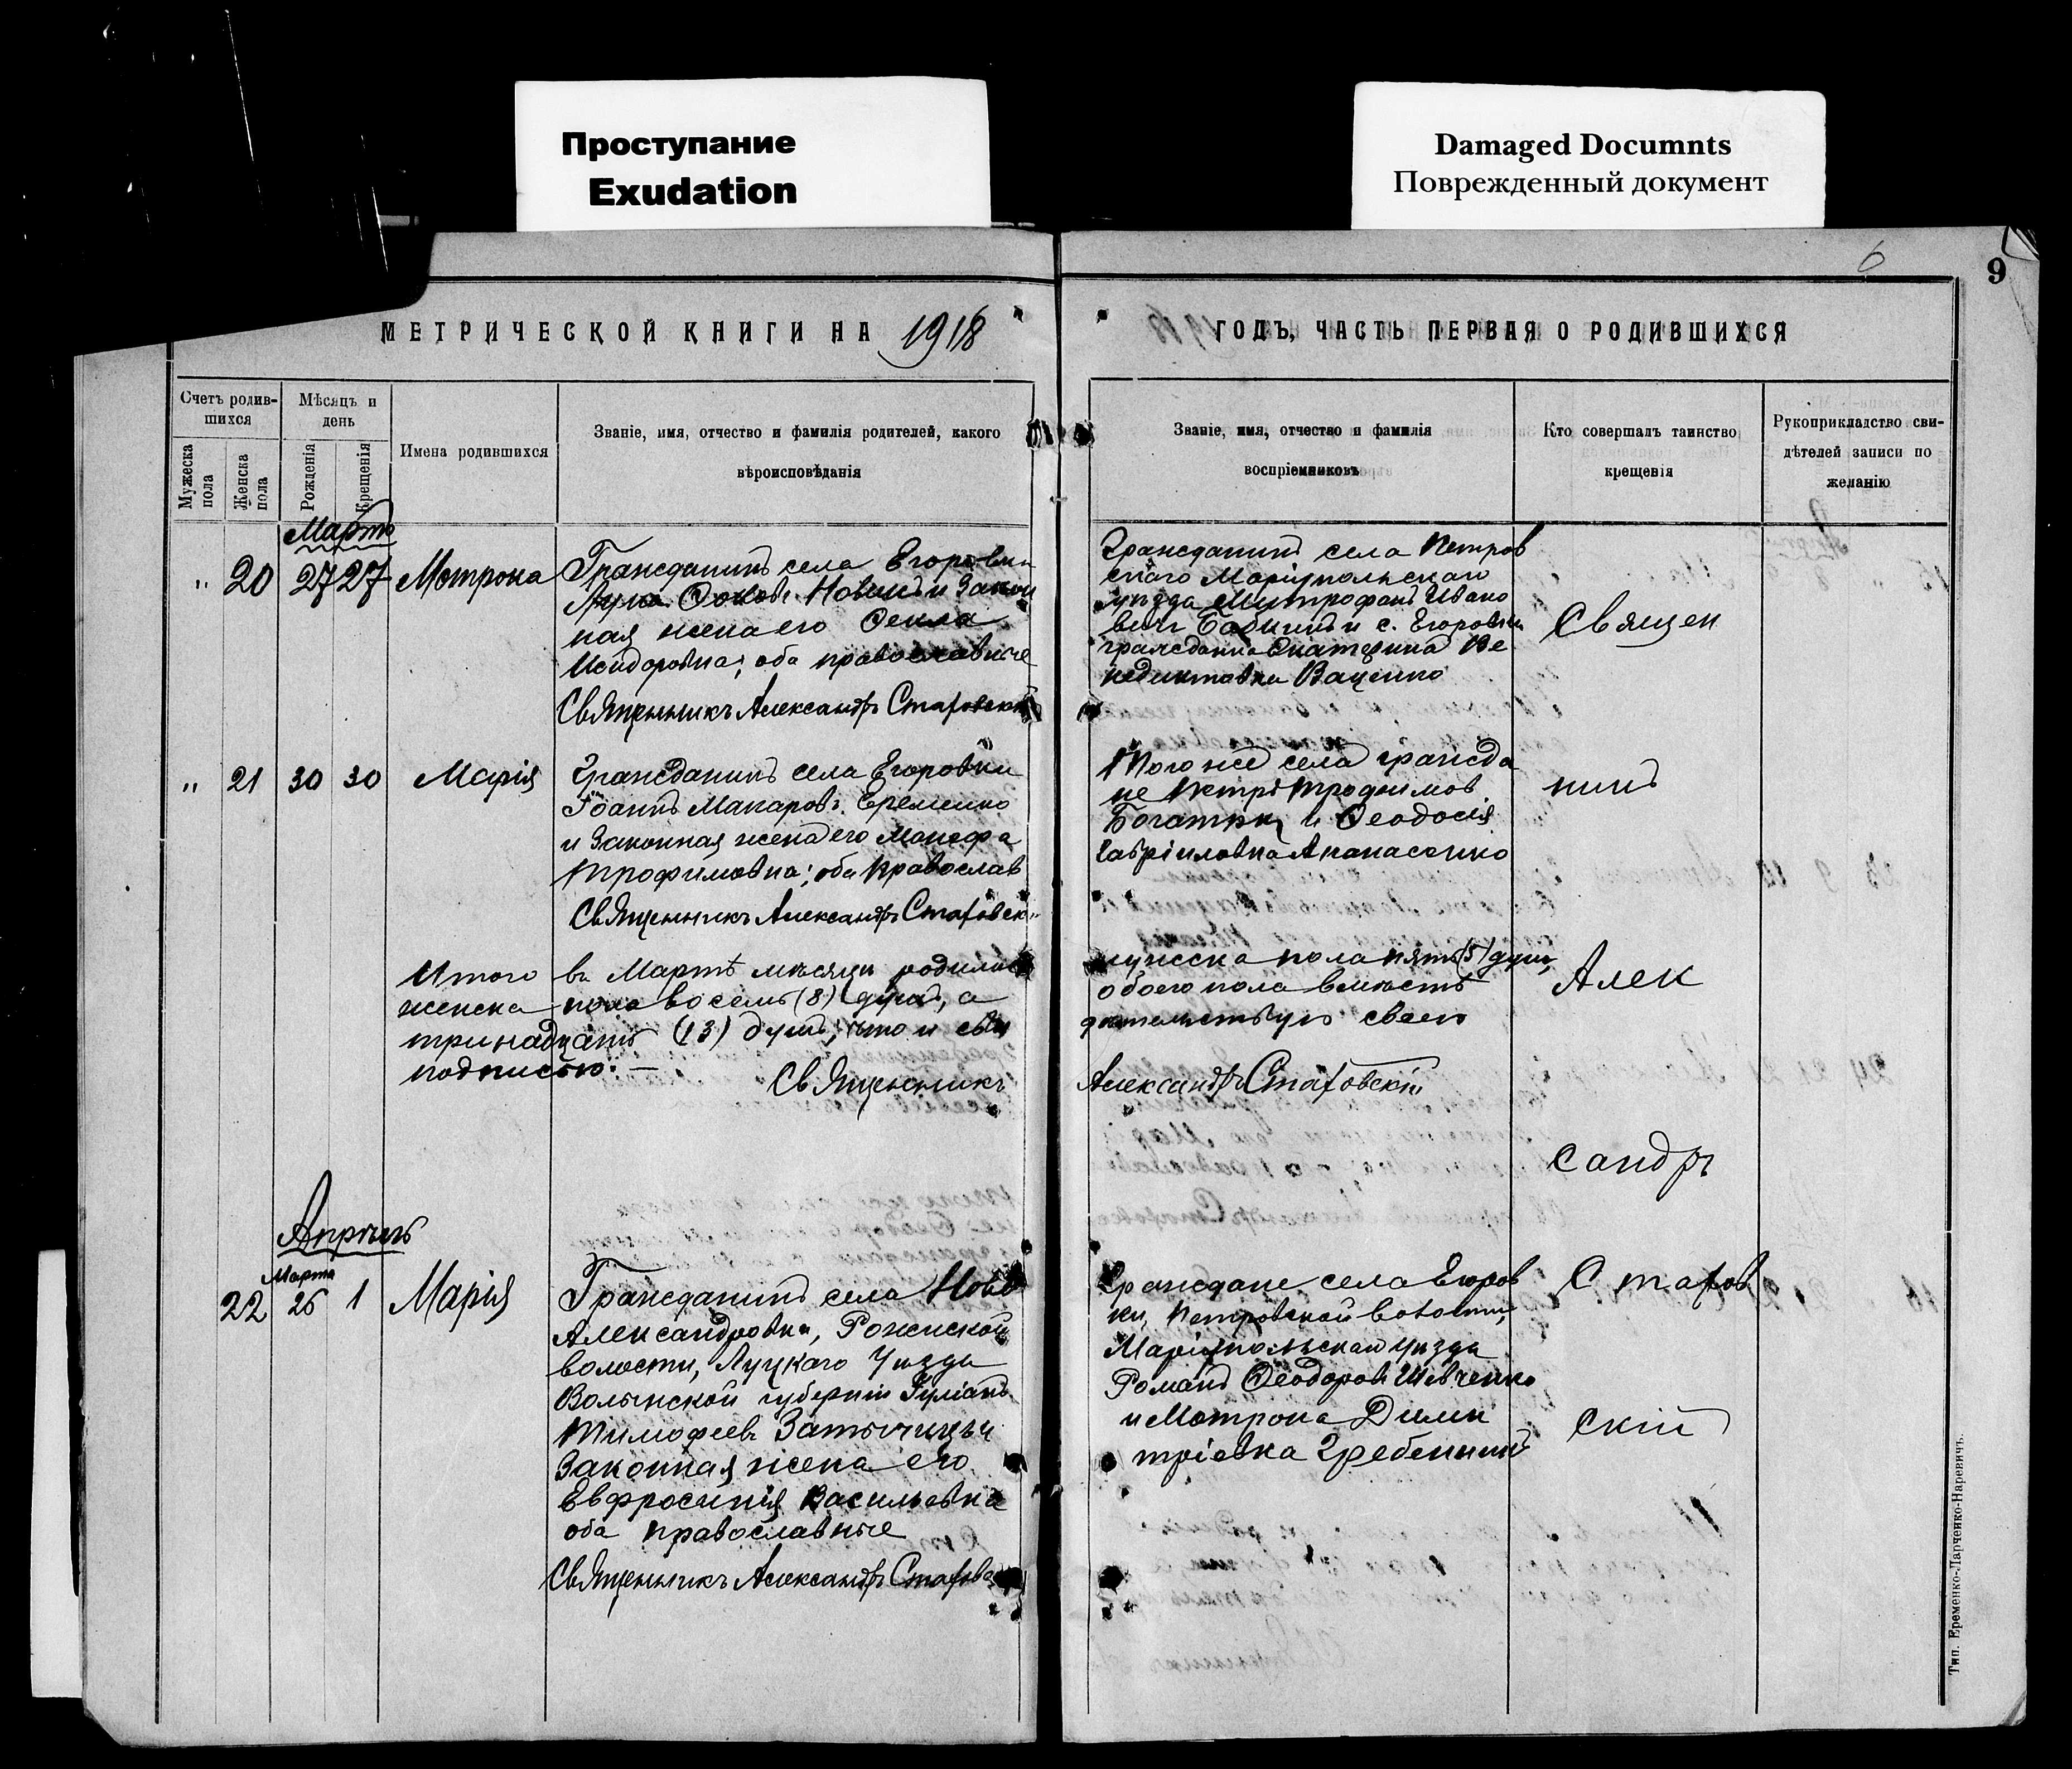 Проступание
Exudation
Damaged Documnts
Поврежденный документ
6
9
МЕТРИЧЕСКОЙ КНИГИ НА 1918
ГОДЪ, ЧАСТЬ ПЕРВАЯ О РОДИВШИХСЯ
Счетъ родив-
шихся
Мужеска
пола
Женска
пола
Мѣсяцъ и
день
Рожденія
Крещенія
Имена родившихся
Званіе, имя, отчество и фамилія родителей, какого
вѣроисповѣданія
Званіе, имя, отчество и фамилія
воспріемниковъ
Кто совершалъ таинство
крещенія
Рукоприкладство сви-
дѣтелей записи по
желанію
Мартъ
" 20 27 27 Мотрона
Гражданинъ села Егоровки
Лука Новицъ и Закон
ная жена его Ѳекла
Исидоровна; оба православные
Священникъ Александръ Стаховскій
Гражданинъ села Петров
скаго Маріупольскаго
уѣзда Митрофанъ Ивано
вичъ и с. Егоровки
гражданка Екатерина Ве
недиктовна Ваценко
Священ
" 21 30 30 Марія
Гражданинъ села Егоровки
Іоаннъ Макаровъ Еременко
и Законная жена его
Трофимовна; оба православ
Священникъ Александръ Стаховск
Того же села гражда
не Петръ Трофимов
и Ѳеодосія
Гавріиловна Апанасенко
никъ
Итого въ Мартѣ мѣсяцѣ родилось
женска пола восемь (8) душъ, а
тринадцать (13) душъ; что и сви
подписью. —
Священникъ
мужеска пола пять (5) душ,
обоего пола вмѣстѣ
дѣтельствую своею
Александръ Стаховскій
Алек
сандръ
Апрѣль
Марта
22 26 1 Марія
Гражданинъ села Ново
Александровки, Рожиской
волости, Луцкаго Уѣзда
Волынской губерніи Іуліанъ
Тимофеевъ
Законная жена его
Евфросинія Васильевна
оба православные
Священникъ Александръ Стаховс
Граждане села Егоров
ки, Петровской волости,
Маріупольскаго уѣзда
Романъ Ѳеодоровъ Шевченко
и Мотрона Дими
тріевна Гребенникъ
Стахов
скій
Тип. Еременко-Ларченко-Наревичъ.